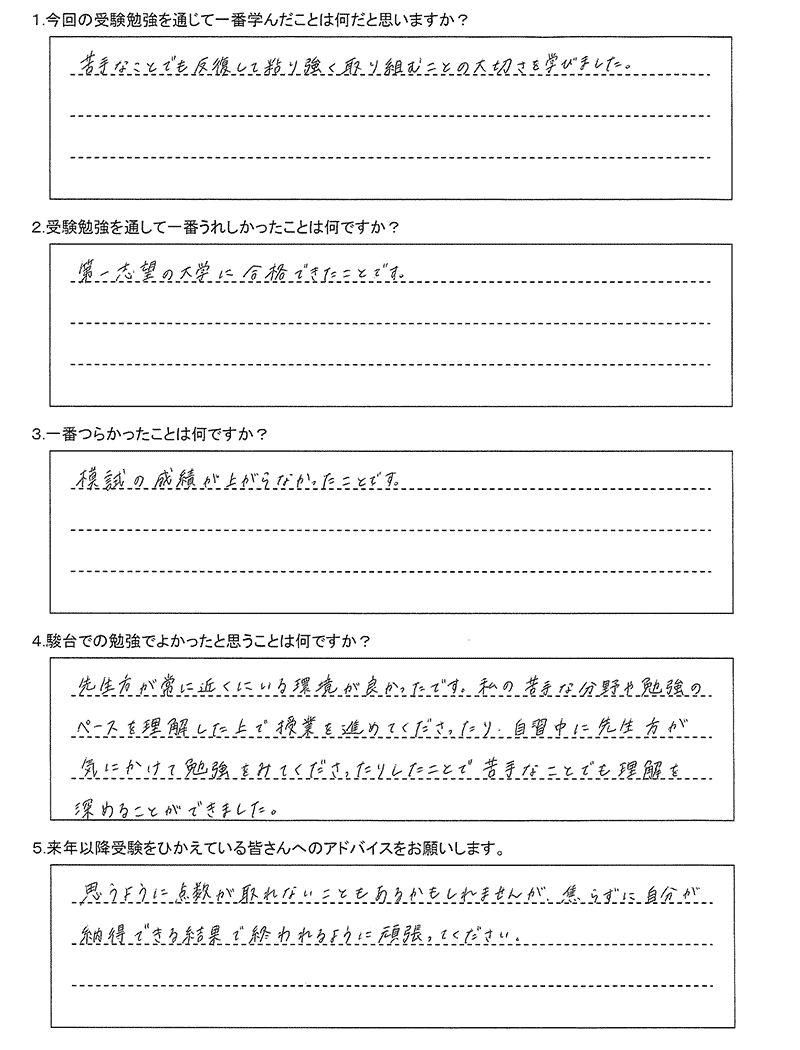 1.今回の受験勉強を通じて一番学んだことは何だと思いますか？
苦手なことでも反復して粘り強く取り組むことの大切さを学びました。
2.受験勉強を通して一番うれしかったことは何ですか？
第一志望の大学に合格できたことです。
3.一番つらかったことは何ですか？
模試の成績が上がらなかったことです。
4.駿台での勉強でよかったと思うことは何ですか？
先生方が常に近くにいる環境が良かったです。私の苦手な分野や勉強の
ペースを理解した上で授業を進めてくださったり、自習中に先生方が
気にかけて勉強をみてくださったりしたことで苦手なことでも理解を
深めることができました。
5.来年以降受験をひかえている皆さんへのアドバイスをお願いします。
思うように点数が取れないこともあるかもしれませんが、焦らずに自分が
納得できる結果で終われるように頑張ってください。